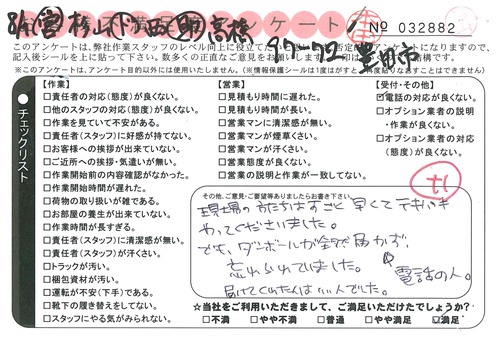 不満足 アンケート No 032882
このアンケートは、弊社作業スタッフのレベル向上に役立てた
記入後シールを上に貼って下さい。数多くの正直なご意見をお
※このアンケートは、アンケート目的以外には使用いたしません。(※情報保護シールは1度はがすと再度貼りなおすことはできません)
チェックリスト
【作業】
□責任者の対応(態度)が良くない。
□他のスタッフの対応(態度)が良くない。
□作業を見ていて不安がある。
□責任者(スタッフ)に好感が持てない。
□お客様への挨拶が出来ていない。
□ご近所への挨拶・気遣いが無い。
□作業開始前の内容確認がなかった。
□作業開始時間が遅れた。
□荷物の取り扱いが雑である。
□お部屋の養生が出来ていない。
□作業時間が長すぎる。
□責任者(スタッフ)に清潔感が無い。
□責任者(スタッフ)が汗くさい。
□トラックが汚い。
□梱包資材が汚い。
□運転が不安(下手)である。
□靴下の履き替えをしてない。
□スタッフにやる気がみられない。
【営業】
□見積もり時間に遅れた。
□見積もり時間が長い。
□営業マンに清潔感が無い。
□営業マンが煙草くさい。
□営業マンが汗くさい。
□営業態度が良くない。
□営業の説明と作業が一致してない。
【受付・その他】
□電話の対応(態度)が良くない。
□オプション業者の説明
・作業が良くない。
□オプション業者の対応
(態度)が良くない。
その他、ご意見・ご要望等ありましたらお書き下さい
現場の方たちはすごく早くてテキパキ
やってくださいました。
でも、ダンボールが全部届かず、
忘れられていました。
電話の人。
届けてくれた人はいい人でした。
☆当社をご利用いただきまして、ご満足いただけたでしょうか?
□不満 □やや不満 □普通 □やや満足 □満足